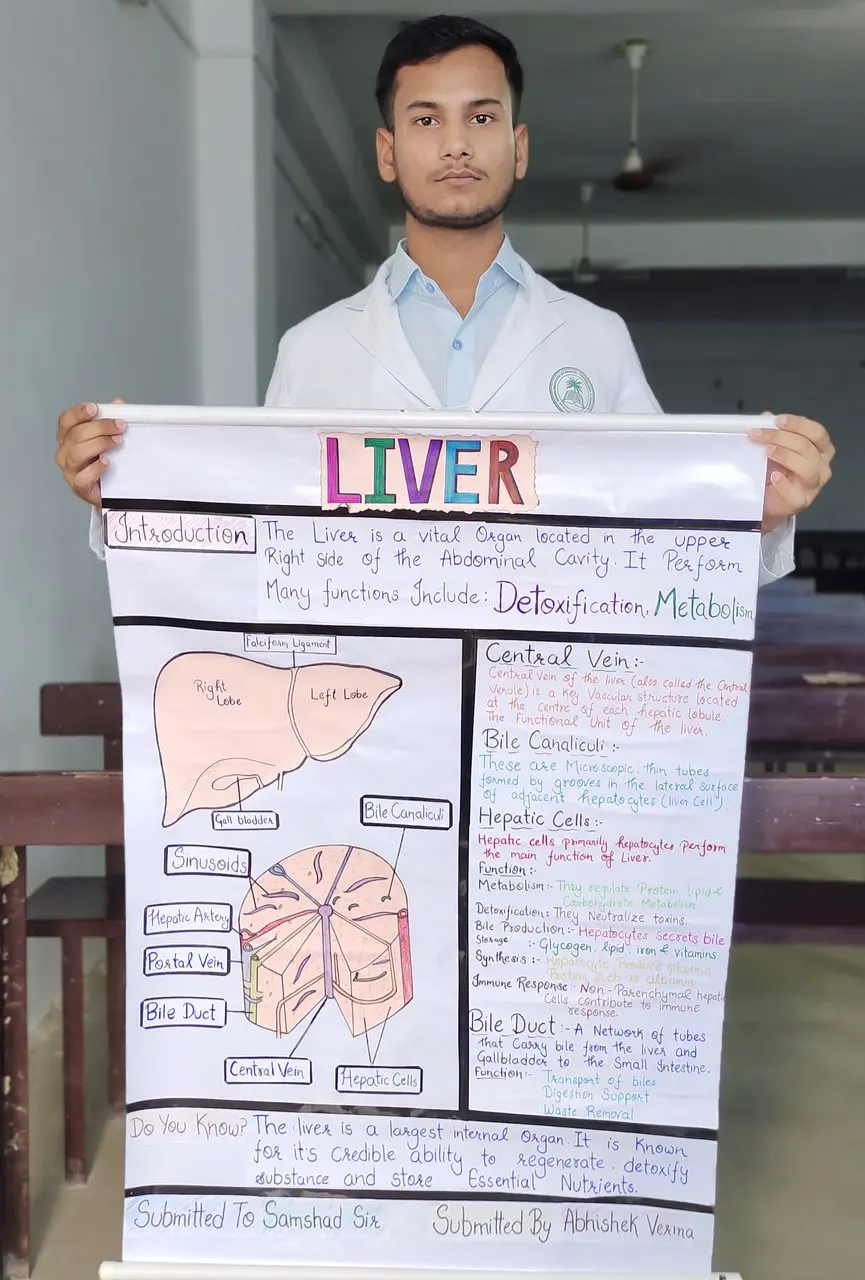 LIVER
Introduction
The Liver is a vital Organ located in the upper
Right side of the Abdominal Cavity. It Perform
Many functions Include: Detoxification, Metabolism
Falciform Ligament
Right
Lobe
Left Lobe
Gall bladder
Bile Canaliculi
Sinusoids
Hepatic Artery
Portal Vein
Bile Duct
Central Vein
Hepatic Cells
Central Vein :-
Central Vein of the liver (also called the Central
Venule) is a Key Vascular structure located
at the centre of each hepatic lobule.
The Functional Unit of the liver.
Bile Canaliculi :-
These are Microscopic, thin tubes
formed by grooves in the lateral surface
of adjacent hepatocytes (liver Cell).
Hepatic Cells :-
Hepatic cells primarily hepatocytes Perform
the main function of Liver.
Function :-
Metabolism :- They regulate Protein, lipid &
Carbohydrate Metabolism
Detoxification: They Neutralize toxins.
Bile Production :- Hepatocytes Secrets bile
Storage :- Glycogen, lipid, iron & vitamins
Synthesis :- Hepatocyte Produce plasma
Protein such as albumin
Immune Response - Non-Parenchymal hepatic
Cells contribute to immune
response.
Bile Duct :- A Network of tubes
that Carry bile from the liver and
Gallbladder to the Small Intestine.
Function:-
Transport of biles
Digestion Support
Waste Removal
Do You Know? The liver is a largest internal Organ. It is Known
for it's credible ability to regenerate, detoxify
substance and store Essential Nutrients.
Submitted To Samshad Sir
Submitted By Abhishek Verma